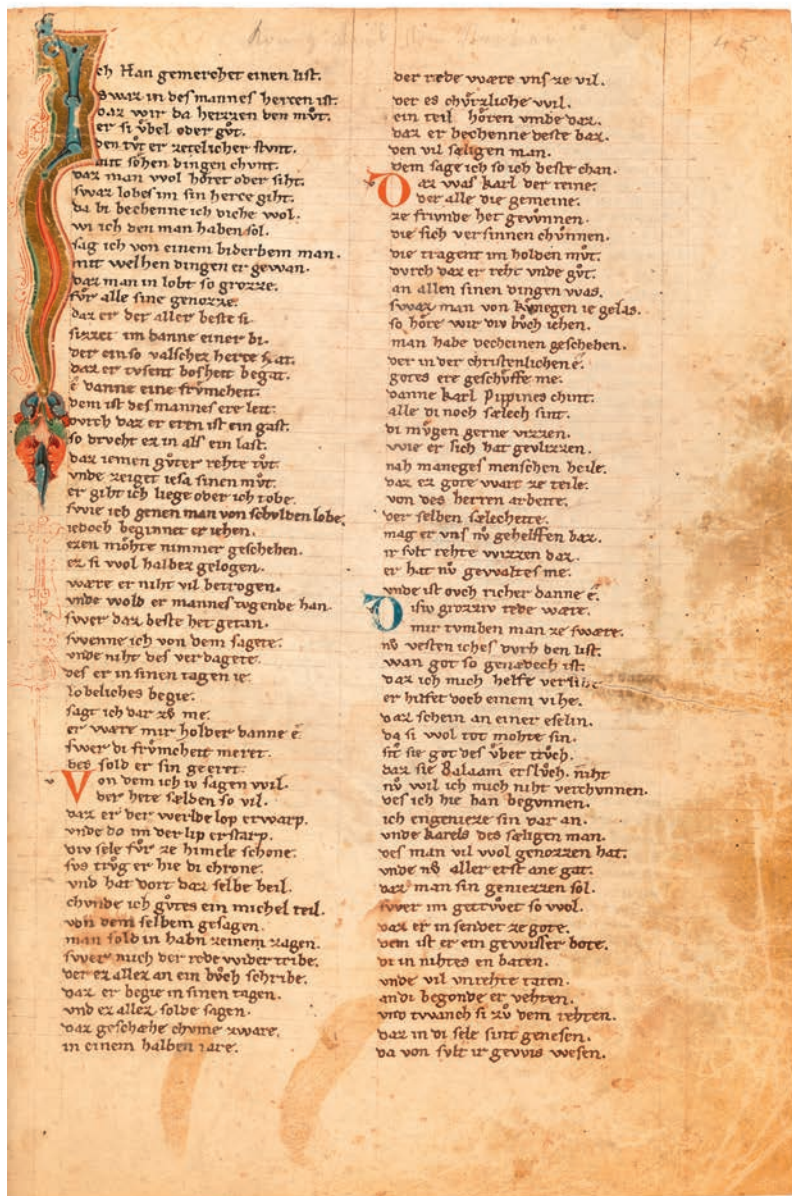 Ich Han gemerchet einen list.
swaz in des mannes herzen ist.
daz wir da heizzen den můt.
er si vbel oder gůt.
den tůt er etelicher stunt.
mit sohen dingen chunt.
daz man wol hőret oder siht.
swaz lobes im sin herce giht.
da bi bechenne ich diche wol.
wi ich den man haben sol.
sag ich von einem biderbem man.
mit welhen dingen er gewan.
daz man in lobt so grozze.
fůr alle sine genozze.
daz er der aller beste si.
sizzet im danne einer bi.
der ein so valschez herce hat.
daz er tvsent bosheit begat.
é danne eine frůmcheit.
dem ist des mannes ere leit.
dvrch daz er eren ist ein gast.
so drvcht ez in als ein last.
daz iemen gůter rehte tůt.
vnde zeiget iesa sinen můt.
er giht ich liege oder ich tobe.
swie ich genen man von schvlden lobe.
iedoch beginnet er iehen.
ezen mőhte nimmer geschehen.
ez si wol halbez gelogen.
wære er niht vil betrogen.
vnde wold er mannes tvgende han.
swer daz beste het getan.
swenne ich von dem sagete.
vnde niht des verdagete.
des er in sinen tagen ie.
lobeliches begie.
sagt ich dar zů me.
er wære mir holder danne é.
swer di frůmcheit meret.
des sold er sin geeret.
Von dem ich iv sagen wil.
der hete sælden so vil.
daz er der werlde lop erwarp.
vnde do im der lip erstarp.
div sele fůr ze himele schone.
svs trůg er hie di chrone.
vnd hat dort daz selbe heil.
chvnde ich gůtes ein michel teil.
von dem selbem gesagen.
man sold in habn zeinem zagen.
swer mich der rede wider tribe.
der ez allez an ein bůch schribe.
daz er begie in sinen tagen.
vnd ez allez solde sagen.
daz geschæhe chvme zware.
in einem halben iare.
der rede wære vns ze vil.
der es chůrzliche wil.
ein teil hőren vmbe daz.
daz er bechenne deste baz.
den vil sæligen man.
dem sage ich so ich beste chan.
Daz was karl der reine.
der alle die gemeine.
ze frivnde het gewnnen.
die sich versinnen chvnnen.
die tragent im holden můt.
dvrch daz er reht vnde gůt.
an allen sinen dingen was.
swaz man von kvnegen ie gelas.
so hőre wir div bůch iehen.
man habe decheinen gesehen.
der in der christenlichen é.
gotes ere geschůffe me.
danne karl Pippines chint.
alle di noch sælech sint.
di mvgen gerne wizzen.
wie er sich hat gevlizzen.
nah maneges menschen heile.
daz ez gote wart ze teile.
von des herren arbeite.
der selben sælecheite.
mag er vns nv gehelffen baz.
ir svlt rehte wizzen daz.
er hat nv gewaltes me.
vnde ist ovch richer danne é.
Disiv grozziv rede wære.
mir tvmben man ze swære.
nv vesten iches dvrh den list.
wan got so genædech ist.
daz ich mich helfe versihe
er hilfet doch einem vihe.
daz schein an einer eselin.
da si wol tot mohte sin.
sit sie got des vber trůch.
daz sie Balaam erslůch. niht
nv wil ich mich niht verchvnnen.
des ich hie han begvnnen.
ich engenieze sin dar an.
vnde karels des sæligen man.
des man vil wol genozzen hat.
vnde nv aller erst ane gat.
daz man sin geniezzen sol.
swer im getrůwet so wol.
daz er in sendet ze gote.
dem ist er ein gewisser bote.
di in nihtes en baten.
vnde vil vnrehte taten.
an di begonde er vehten.
vnd twanch si zů dem rehten.
daz in di sele sint genesen.
da von svlt ir gewis wesen.